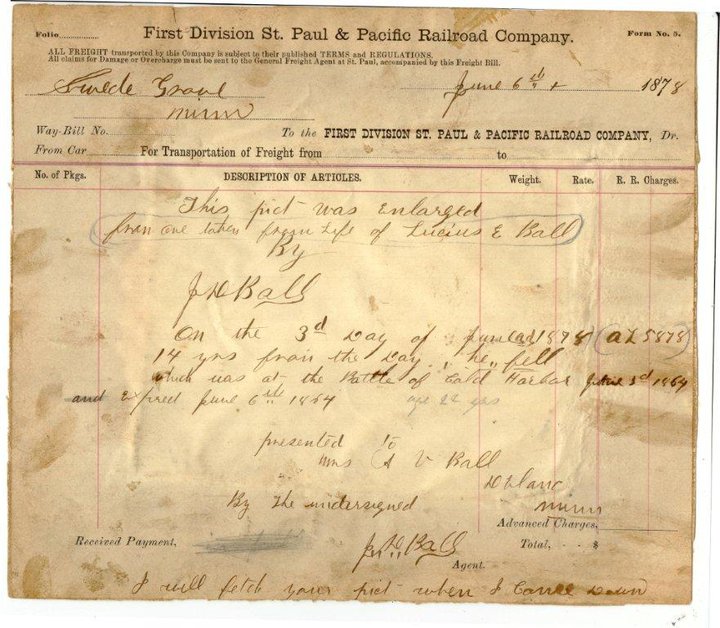 Folio First Division St. Paul & Pacific Railroad Company. Form No. 5.
ALL FREIGHT transported by this Company is subject to their published TERMS and REGULATIONS.
All claims for Damage or Overcharge must be sent to the General Freight Agent at St. Paul, accompanied by this Freight Bill.
Swede Grove June 6th 1878
Minn
Way-Bill No. To the FIRST DIVISION ST. PAUL & PACIFIC RAILROAD COMPANY, Dr.
From Car For Transportation of Freight from to
No. of Pkgs. DESCRIPTION OF ARTICLES. Weight. Rate. R. R. Charges.
This pict was Enlarged
from one taken from Life of Lucius E Ball
By
J N Ball
On the 3d Day of June 1878 5878
14 yrs from the Day he fell
which was at the Battle of Cold Harbor June 3d 1864
and Expired June 6th 1864 age 22 yrs
presented to
Mrs A V Ball
Delano
Minn
By The undersigned
Advanced Charges,
Received Payment, Total, $
J N Ball
Agent.
I will fetch your pict when I Come Down